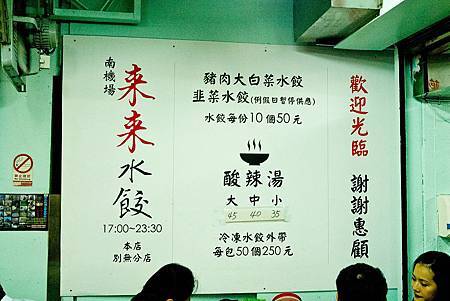 南機場
来来水餃
17:00~23:30
本店
別無分店
豬肉大白菜水餃
韭菜水餃(例假日暫停供應)
水餃每份10個50元
酸辣湯
大中小
45 40 35
冷凍水餃外帶
每包50個250元
歡迎光臨
謝謝惠顧